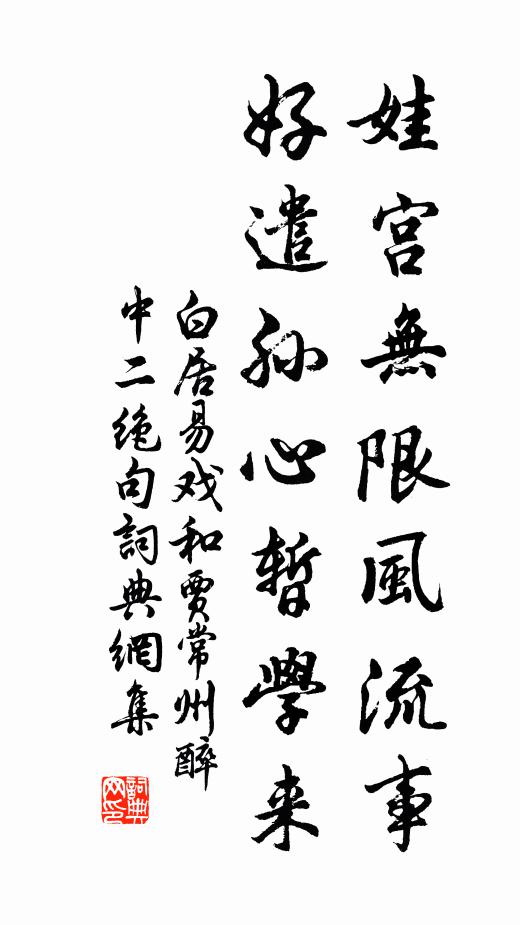 娃宮無限風流事
好遣孙心暫學来
白居易戏和賈常州醉
中二绝句詞典網集
詞典
网印